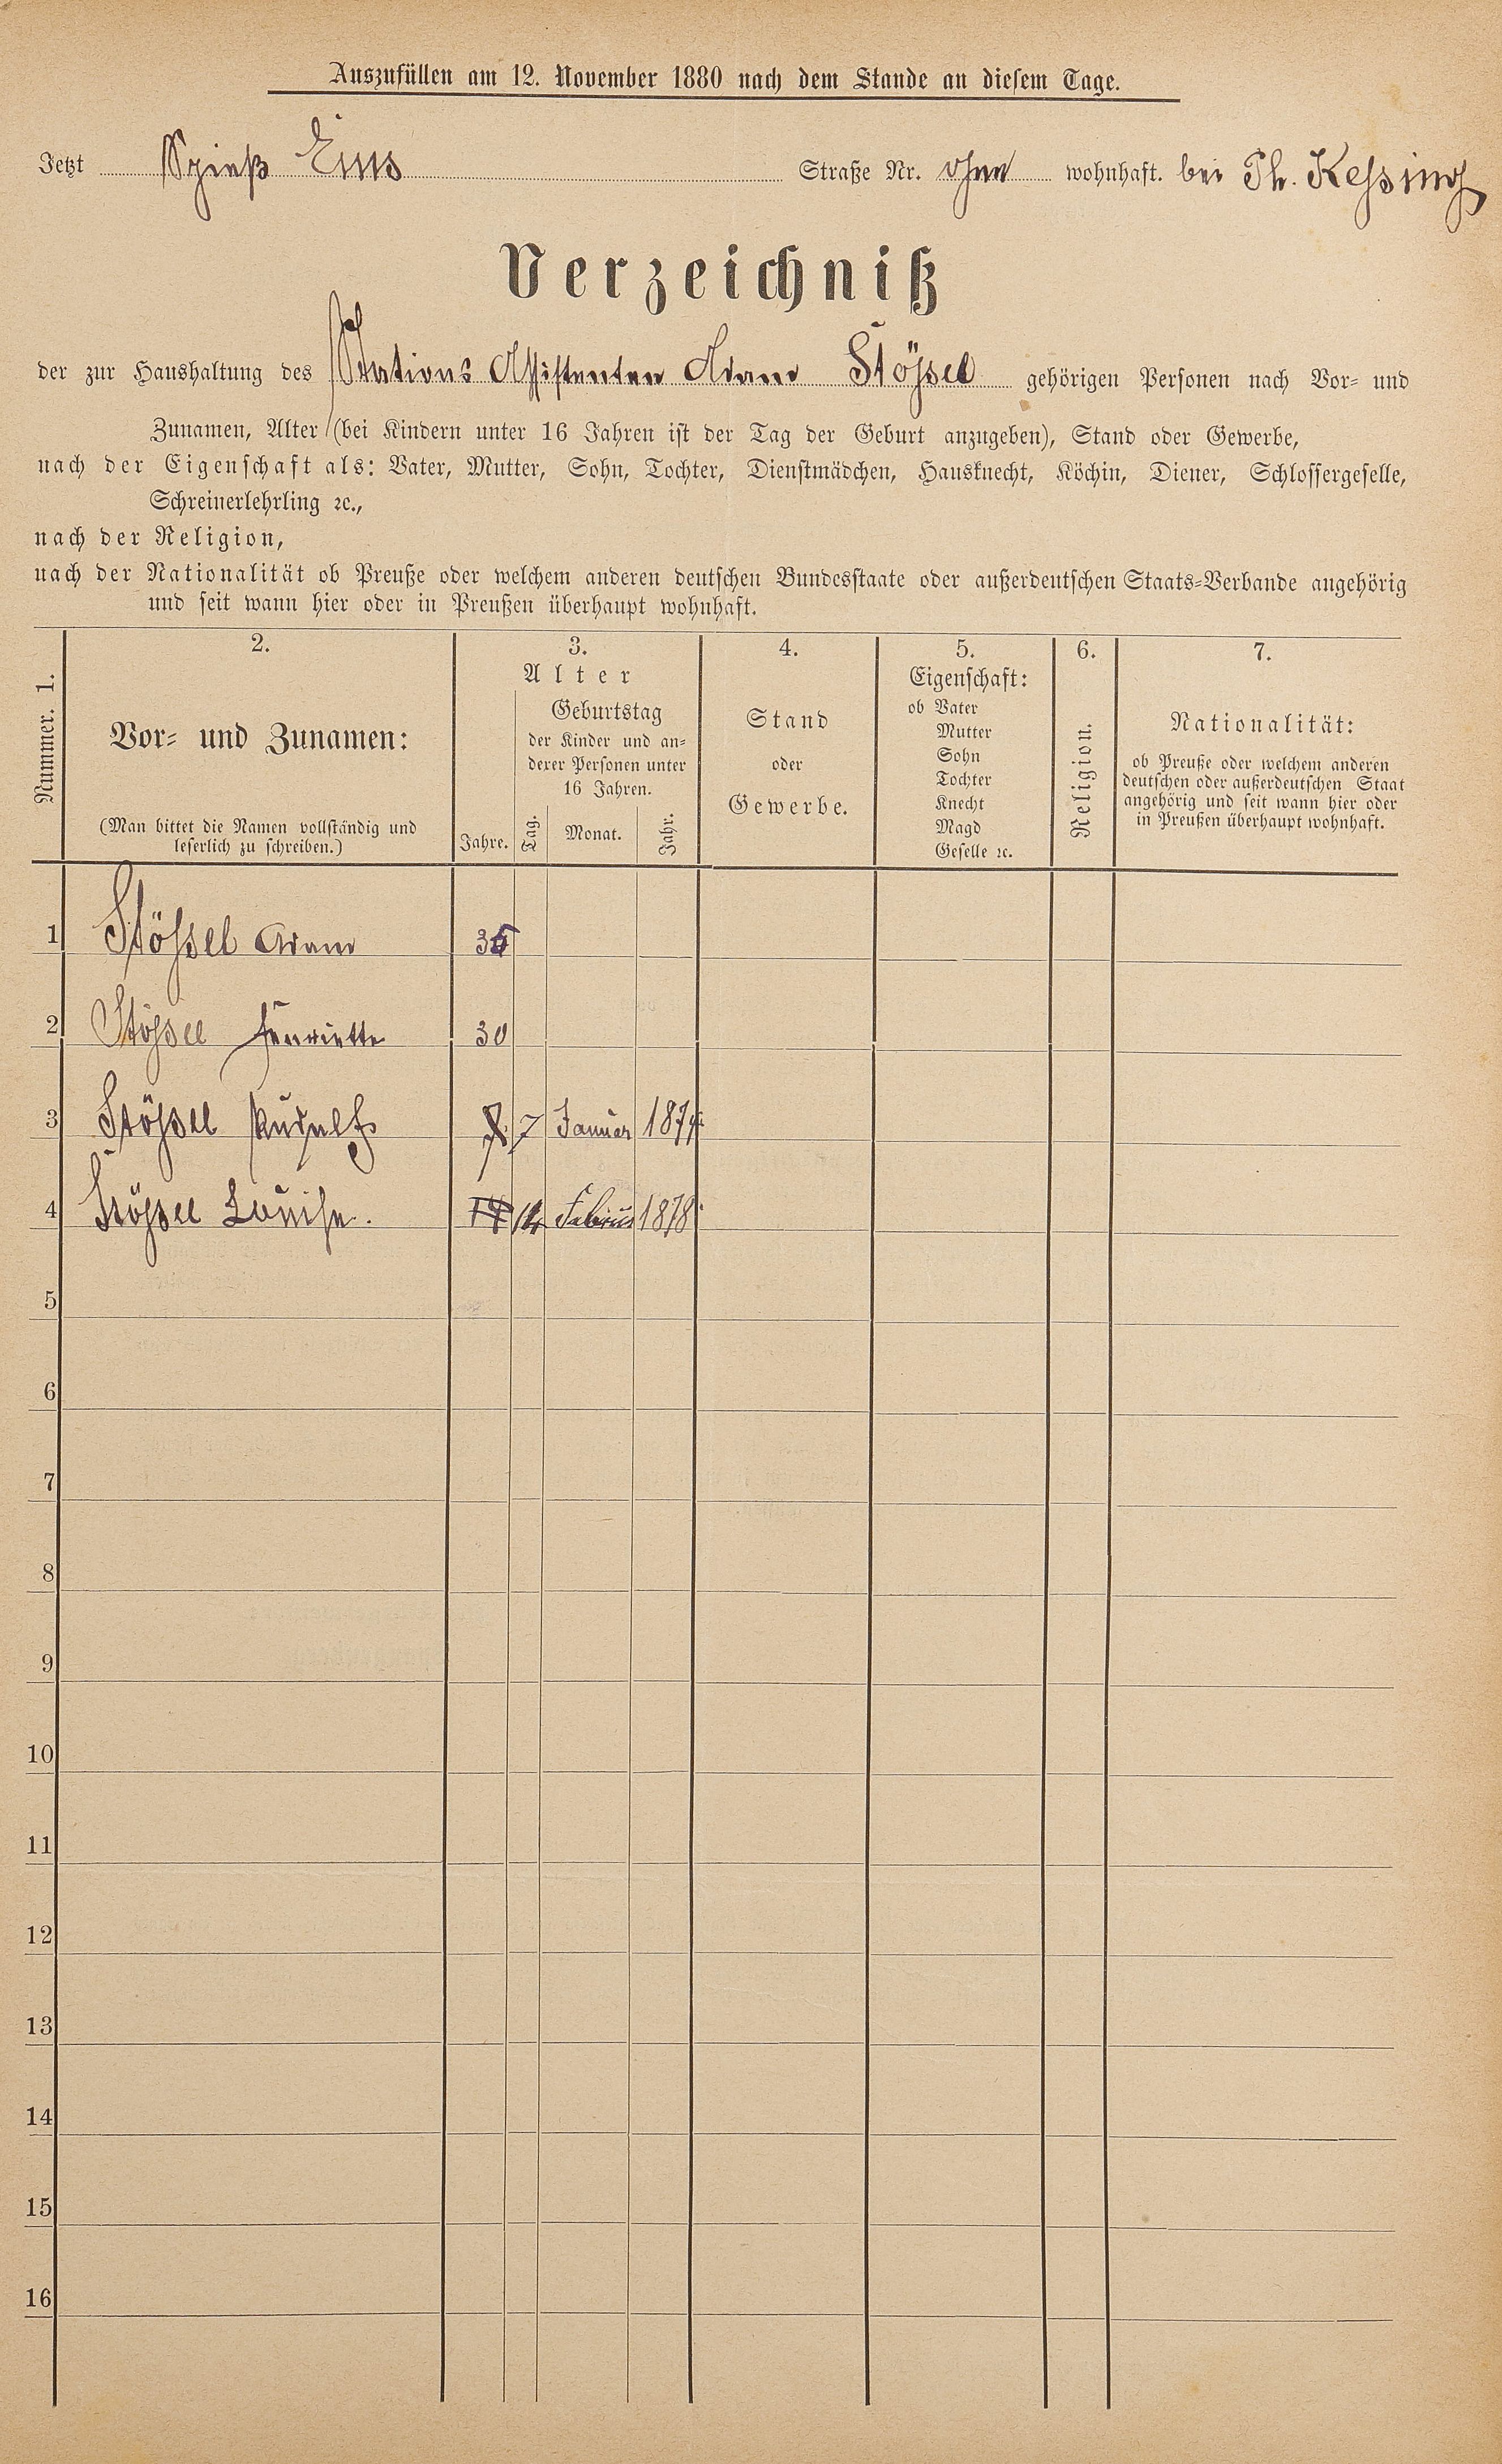 Auszufüllen am 12. November 1880 nach dem Stande an diesem Tage.
Jetzt Spieß Ems Straße Nr. ohne wohnhaft. bei Ph. Kessing
Verzeichniß
der zur Haushaltung des Stations Assistenten Adam Stössel gehörigen Personen nach Vor- und
Zunamen, Alter (bei Kindern unter 16 Jahren ist der Tag der Geburt anzugeben), Stand oder Gewerbe,
nach der Eigenschaft als: Vater, Mutter, Sohn, Tochter, Dienstmädchen, Hausknecht, Köchin, Diener, Schlossergeselle,
Schreinerlehrling ꝛc.,
nach der Religion,
nach der Nationalität ob Preuße oder welchem anderen deutschen Bundesstaate oder außerdeutschen Staats-Verbande angehörig
und seit wann hier oder in Preußen überhaupt wohnhaft.
Nummer. 1.
2.
Vor- und Zunamen:
(Man bittet die Namen vollständig und
leserlich zu schreiben.)
3.
Alter
Geburtstag
der Kinder und an-
derer Personen unter
16 Jahren.
Jahre. Tag. Monat. Jahr.
4.
Stand
oder
Gewerbe.
5.
Eigenschaft:
ob Vater
Mutter
Sohn
Tochter
Knecht
Magd
Geselle ꝛc.
6.
Religion.
7.
Nationalität:
ob Preuße oder welchem anderen
deutschen oder außerdeutschen Staat
angehörig und seit wann hier oder
in Preußen überhaupt wohnhaft.
1 Stössel Adam 35
2 Stössel Henriette 30
3 Stössel Rudolf 7 Januar
4 Stössel Louise. 14 Februar 1878
5
6
7
8
9
10
11
12
13
14
15
16